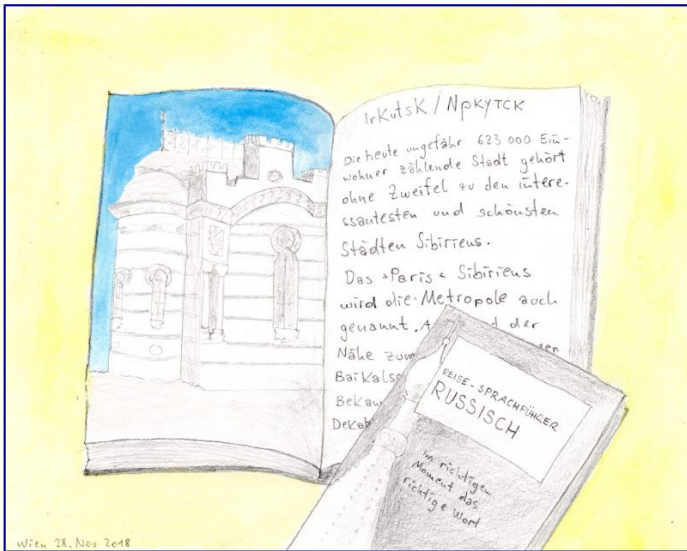 Irkutsk / Npkytck
Die heute ungefähr 623 000 Ein-
wohner zählende Stadt gehört
ohne Zweifel zu den intere-
ssantesten und schönsten
Städten Sibiriens.
Das "Paris" Sibiriens
wird die Metropole auch
genannt. d der
Nähe zum
Baikals
Bekan
Dekab
REISE-SPRACHFÜHRER
RUSSISCH
im richtigen
Moment das
richtige Wort
Wien 28. Nov 2018